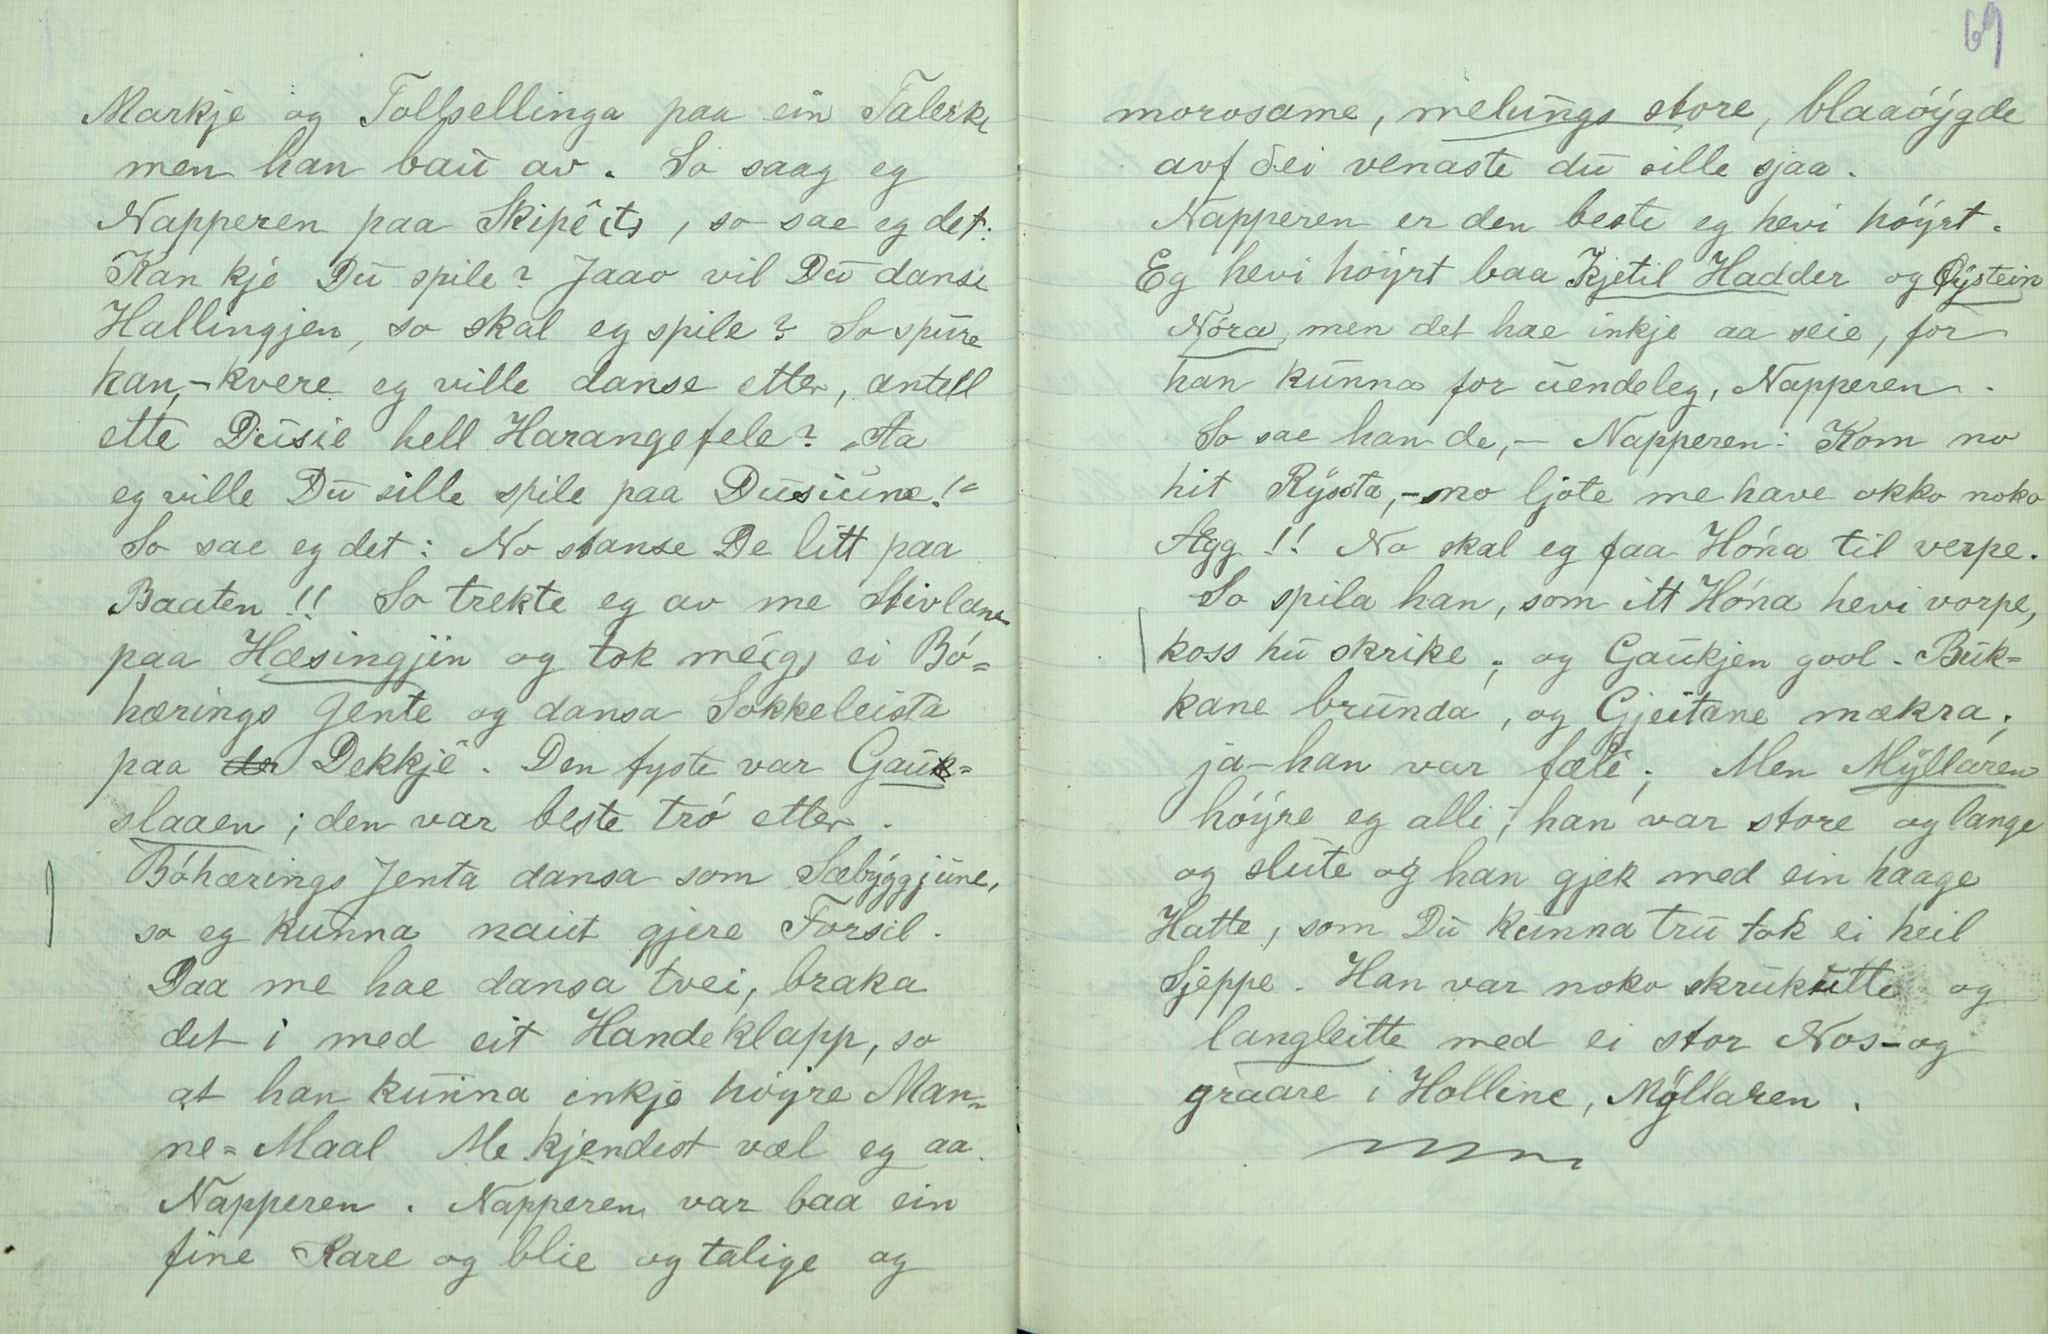 Markje og Tollsellinga paa ein Talerk,
men han bau av. So saag eg
Napperen paa Skipê(t), so sae eg det:
Kan kje Du spile? Jaao vil Du danse
Hallingjen, so skal eg spile? So spure
han, - kvere eg ville danse etter, antell
ette Dusie hell Harangefele? „Aa
eg ville Du sille spile paa Dusiune!"
So sae eg det: No stanse De litt paa
Baaten!! So trekte eg av me Stivlane
paa Hæsingjen og tok mé(g) ei Bó=
hærings Jente og dansa Sokkeleista
paa Dekkjê. Den fyste var Gauk=
slaaen; den var beste tró etter.
Bóhærings Jenta dansa som Sæbýggjune,
so eg kunna naut gjere Forsil.
Daa me hae dansa tvei, braka
det i med eit Handeklapp, so
at han kunna inkje höyre Man=
ne=Maal Me kjendest væl eg aa
Napperen. Napperen var baa ein
fine Kare og blie og talige og
69
morosame, melungs store, blaaóýgde
avf dei venaste du sille sjaa.
Napperen er den beste eg hevi hóýrt.
Eg hevi hóýrt baa Kjetil Hadder og Øystein
Nóra, men det hae inkje aa seie, for
han kunna for uendeleg, Napperen.
So sae han de, - Napperen: Kom no
hit Rýssta, - no ljote me have okko noko
Ægg!! No skal eg faa Hóna til verpe.
So spila han, som itt Hóna hevi vorpe,
koss hu skrike; og Gaukjen gool. Buk=
kane brunda, og Gjeitane mækra;
ja - han var fæle; Men Mýllaren
hóýre eg alli; han var store og lange
og slute og han gjek med ein haage
Hatte, som Du kunna tru tok ei heil
Sjeppe. Han var noko skrukutte og
langleitte med ei stor Nos - og
graare i Holline, Mýllaren.